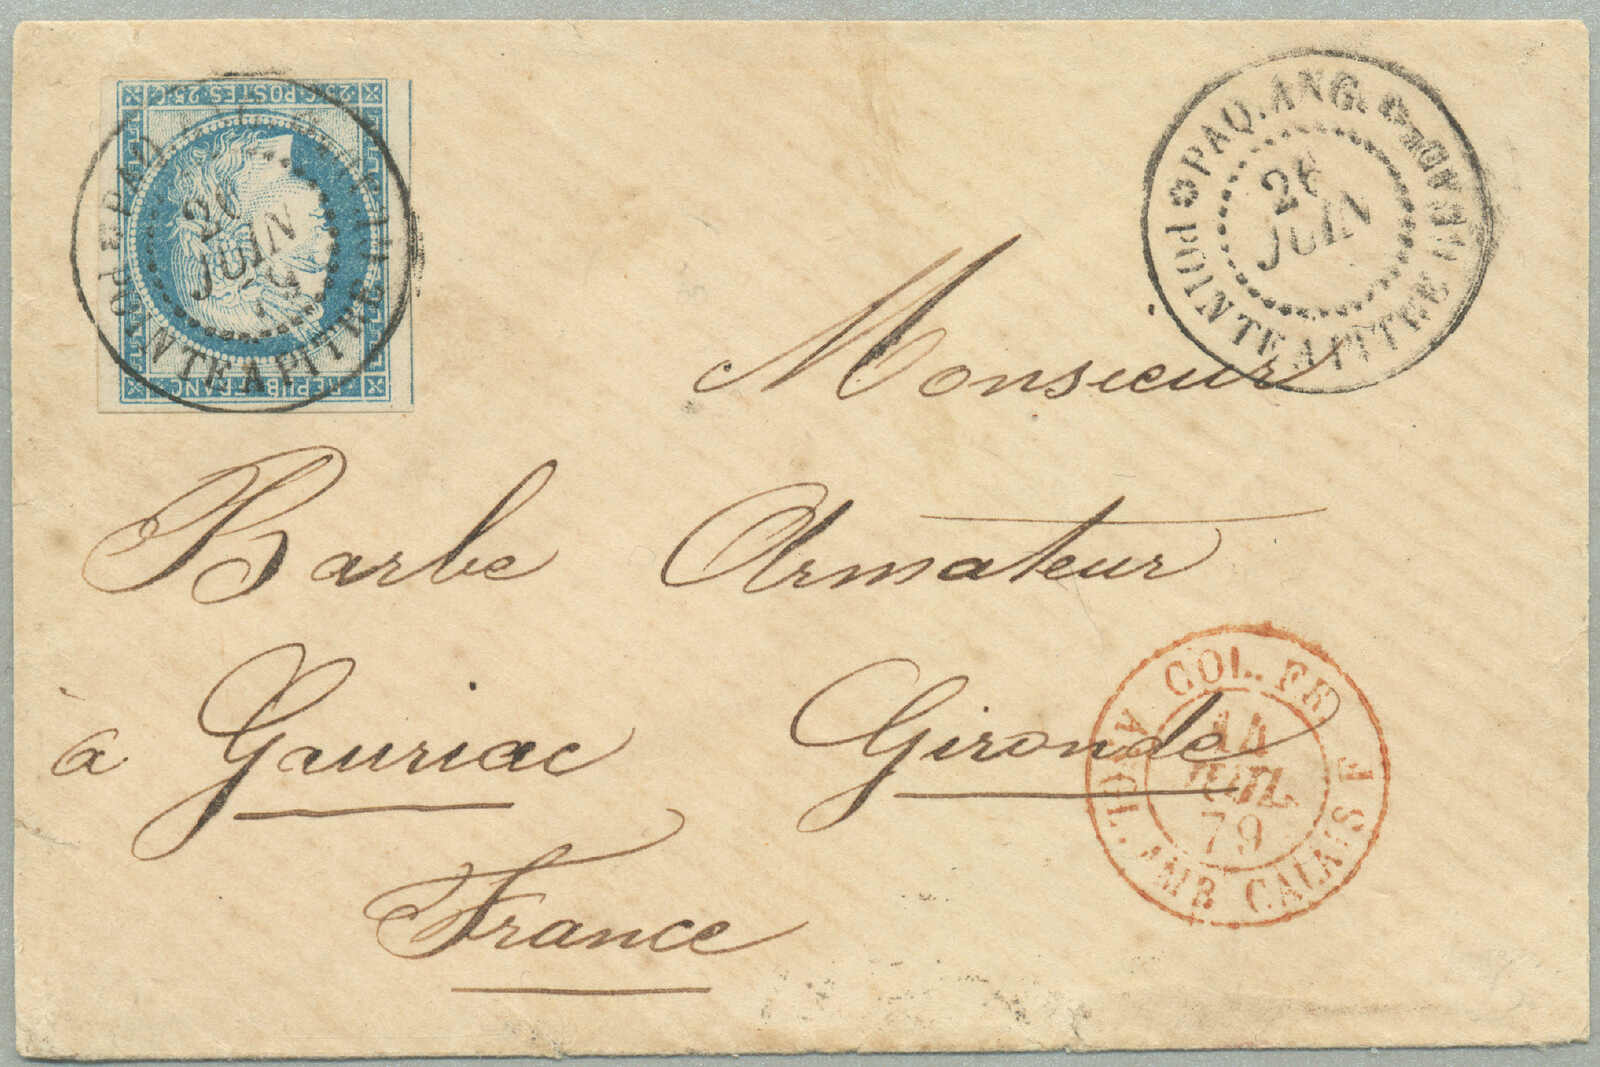 25·C· POSTES·25·C
REPUB·FRANC·
PAQ
26
JUIN
79
POINTE A PITRE
PAQ. ANG.
26
JUIN
POINTE A PITRE
Monsieur
Barbe Armateur
à Gauriac Gironde
France
COL. FR
14
JUIL
79
ANGL. AMB. CALAIS F